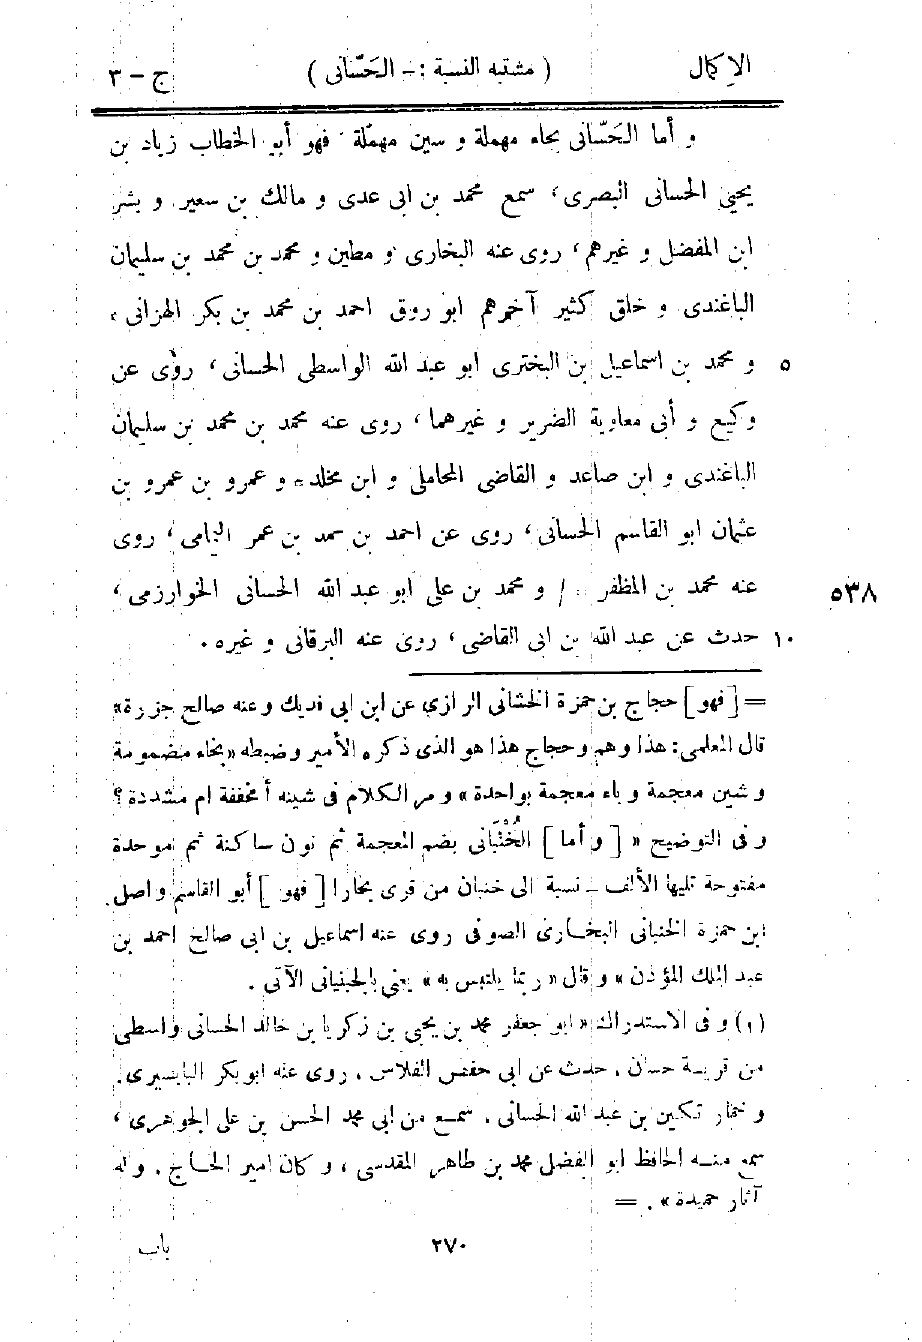 الإكمال ( مشتبه النسبة : – الحَسّانى ) ج – ٣
و أما الحَسّانى بحاء مهملة و سين مهملة فهو أبو الخطاب زياد بن
يحيى الحسانى البصرى ، سمع محمد بن ابى عدى و مالك بن سعير و بشر
ابن المفضل و غيرهم ، روى عنه البخارى و مطين و محمد بن محمد بن سليمان
الباغندى و خلق كثير آخرهم ابو روق احمد بن محمد بن بكر الهزانى ،
٥ و محمد بن اسماعيل بن البخترى ابو عبد الله الواسطى الحسانى ، روى عن
وكيع و أبى معاوية الضرير و غيرهما ، روى عنه محمد بن محمد بن سليمان
الباغندى و ابن صاعد و القاضى المحاملى و ابن مخلد ، و عمرو بن عمرو بن
عثمان ابو القاسم الحسانى ، روى عن احمد بن محمد بن عمر اليمامى ، روى
٥٣٨ عنه محمد بن المظفر / و محمد بن على ابو عبد الله الحسانى الخوارزمى ،
١٠ حدث عن عبد الله بن ابى القاضى ، روى عنه البرقانى و غيره .
= [ فهو ] حجاج بن حمزة الخشانى الرازي عن ابن ابى فديك وعنه صالح جزرة»
قال المعلمى : هذا وهم و حجاج هذا هو الذى ذكره الأمير وضبطه «بخاء مضمومة
و شين معجمة و باء معجمة بواحدة » و مر الكلام فى شينه أ مخففة ام مشددة ؟
و فى التوضيح « [ و أما ] الخُنْبَانى بضم المعجمة ثم نون ساكنة ثم موحدة
مفتوحة تليها الألف – نسبة الى خنبان من قرى بخارا [ فهو ] أبو القاسم واصل
ابن حمزة الخنبانى البخارى الصوفى روى عنه اسماعيل بن ابى صالح احمد بن
عبد الملك المؤذن » و قال « ربما يلتبس به » يعني بالجنبانى الآتى .
(١) و فى الاستدراك « ابو جعفر محمد بن يحيى بن زكريا بن خالد الحسانى واسطى
من قرية حسان . حدث عن ابى حفص الفلاس . روى عنه ابو بكر البابسيرى .
و خمار تكين بن عبد الله الحسانى . سمع من ابى محمد الحسن بن على الجوهرى ،
سمع منه الحافظ ابو الفضل محمد بن طاهر المقدسى ، و كان امير الحاج . و له
آثار حميدة » . =
٢٧٠ باب